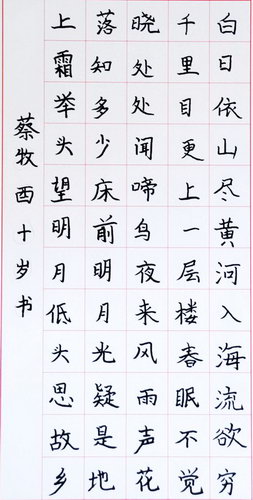 白日依山尽黄河入海流欲穷
千里目更上一层楼春眠不觉
晓处处闻啼鸟夜来风雨声花
落知多少床前明月光疑是地
上霜举头望明月低头思故乡
蔡牧西十岁书